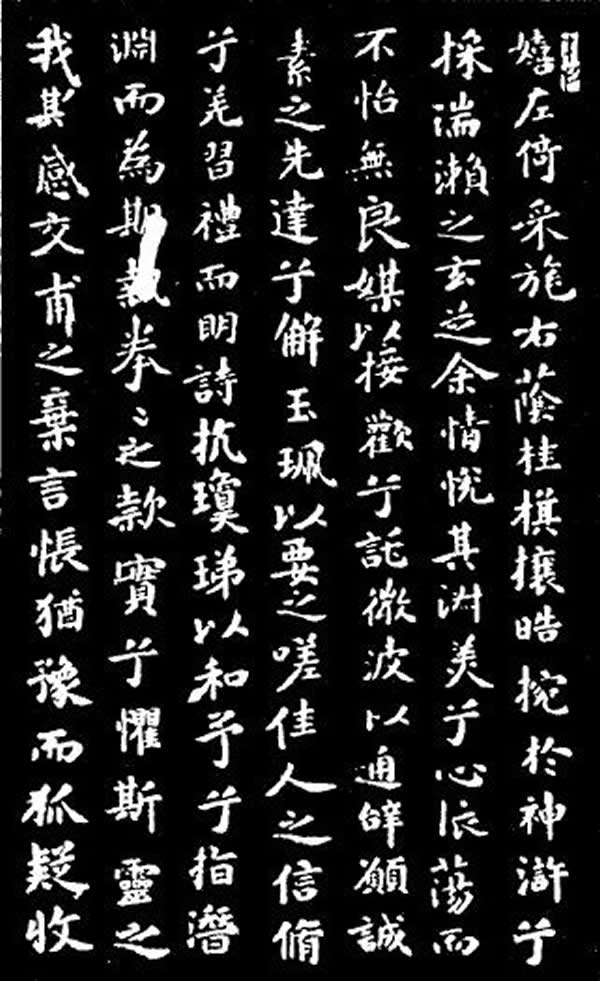 嬉左倚采旄右蔭桂旗攘皓捥於神滸兮
採湍瀨之玄芝余情悅其淑美兮心振蕩而
不怡無良媒以接歡兮託微波以通辭願誠
素之先達兮解玉珮以要之嗟佳人之信脩
兮羌習禮而明詩抗瓊珶以和予兮指潛
淵而為期執拳〻之款實兮懼斯靈之
我欺感交甫之棄言悵猶豫而狐疑收